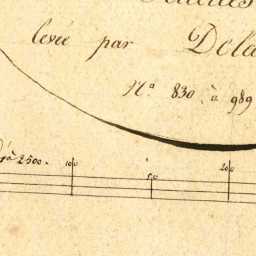 levée par Dela
N.º 830. à 989
à 2500. 100 50 200